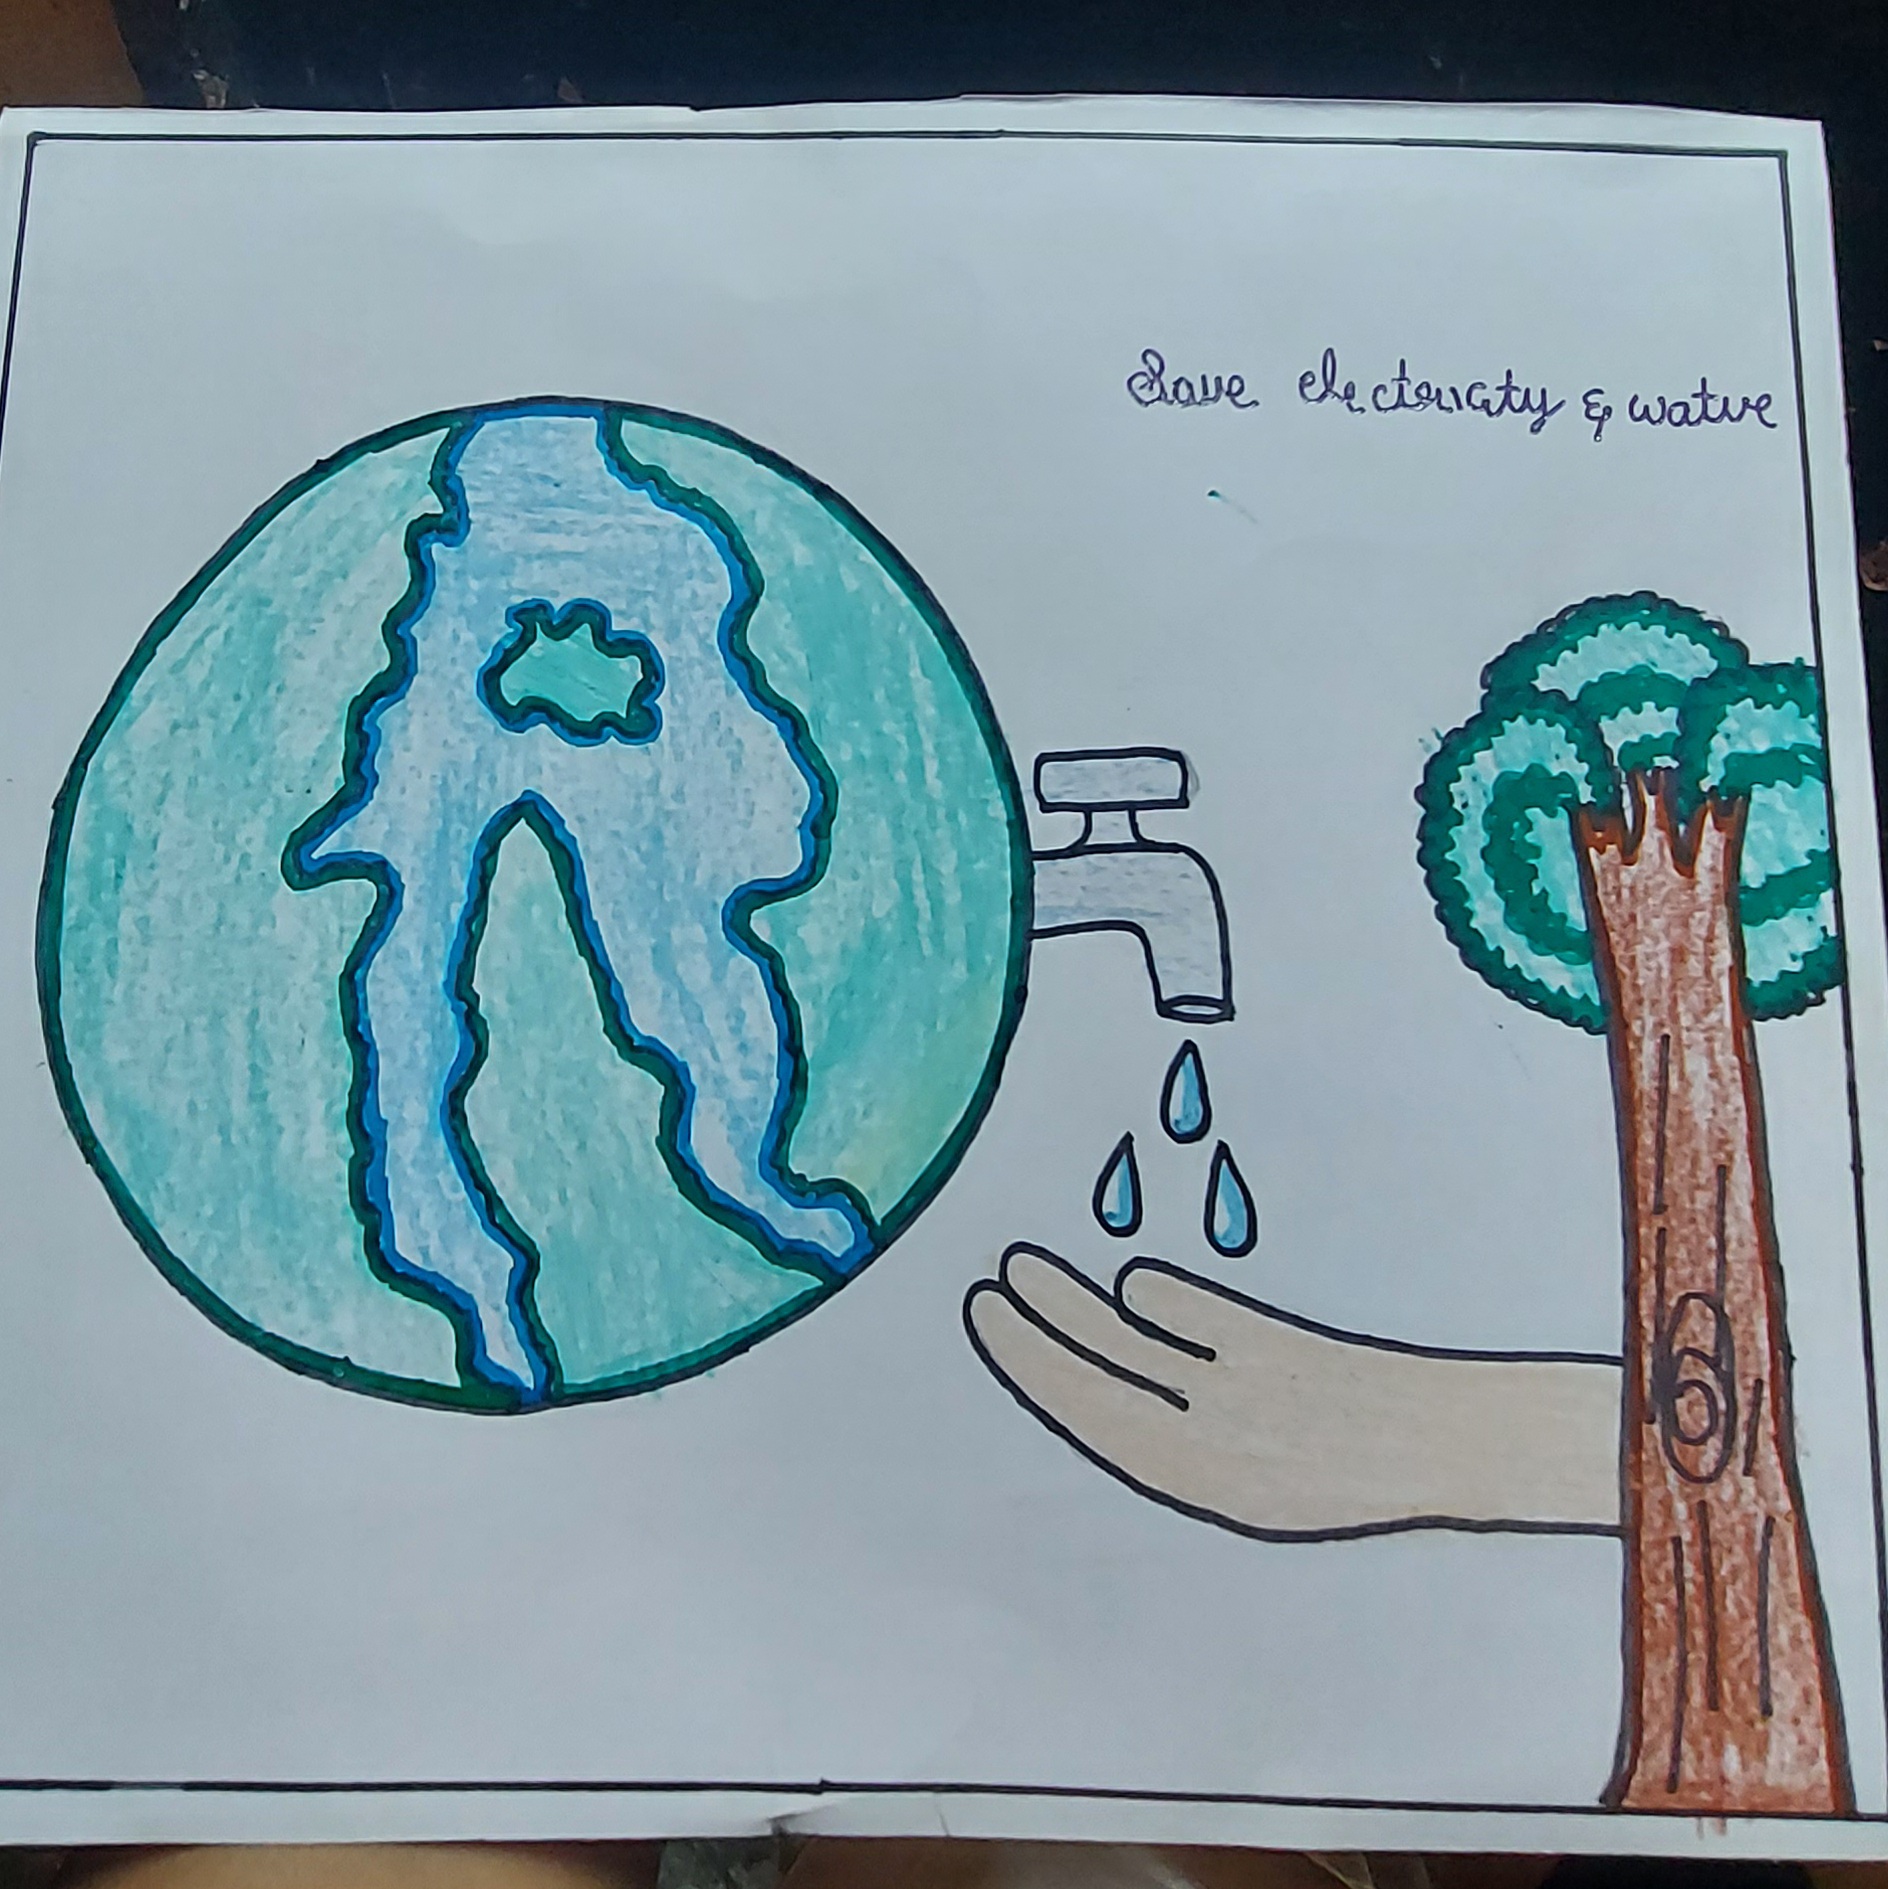 Save electericaty & watre